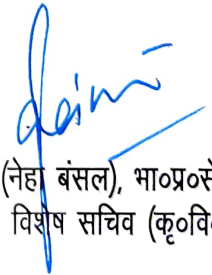 (नेहा बंसल), भा०प्र०से
विशेष सचिव (कृ०वि०